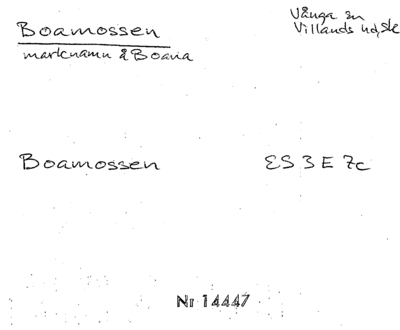 Boamossen
Vånga sn
Villands hd, Sk
marknamn å Boana
Boamossen
ES 3 E 7c
Nr 14447